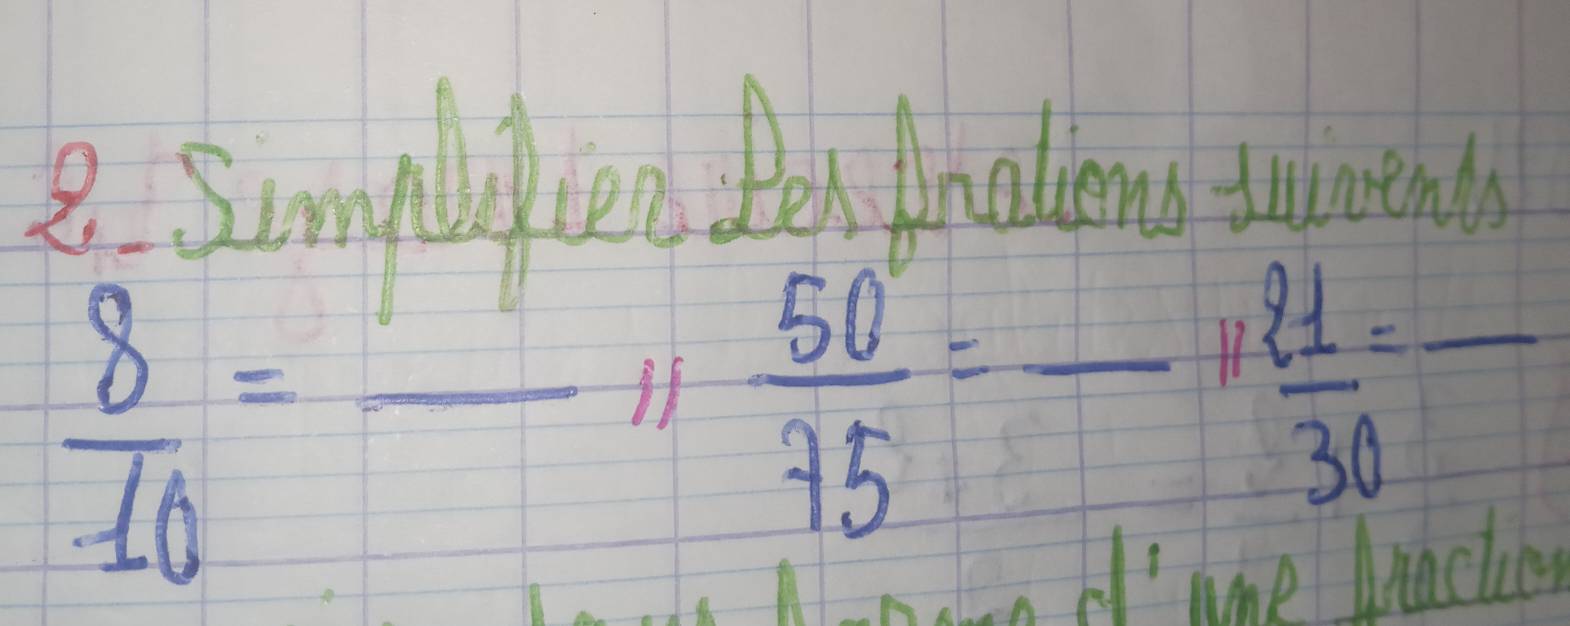 2_ Simplifier les frations suivents
8/10 = ___ // 50/75 = ___ // 21/30 = ___
d'une fraction